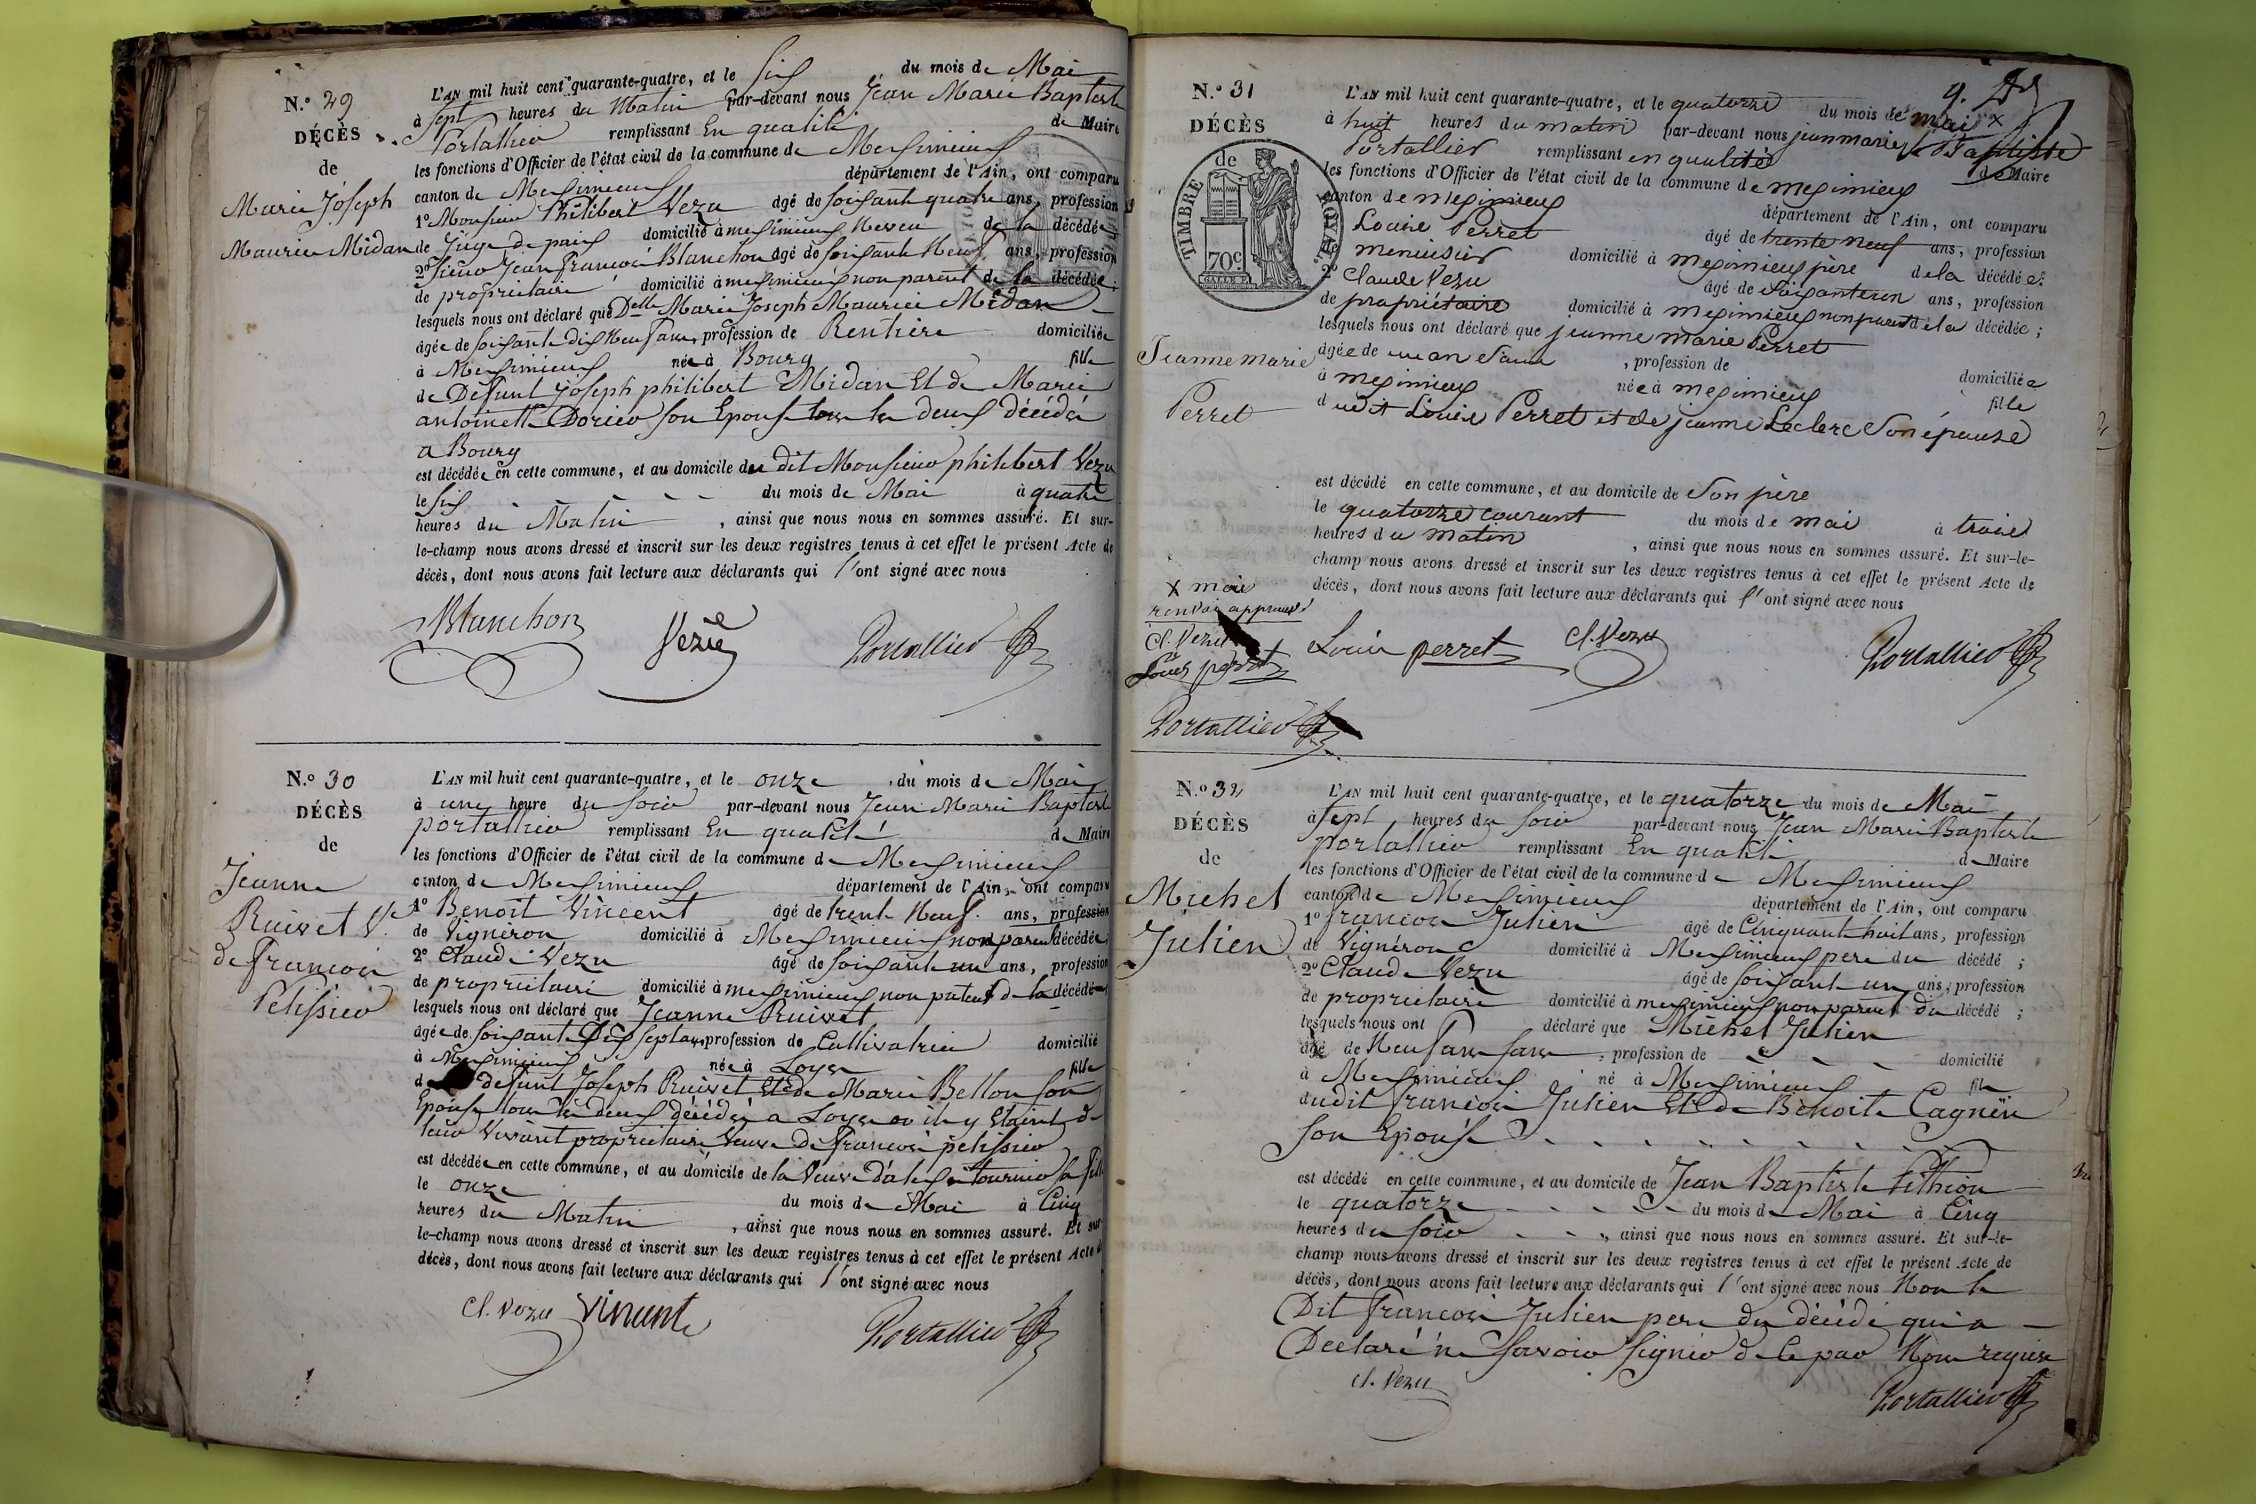 N.° 29
DÉCÈS
de
Marie Joseph
Maurice Midan
L'AN mil huit cent quarante-quatre, et le Six du mois de Mai
à Sept heures du Matin par-devant nous Jean Marie Baptiste
Portallier remplissant En qualité de Maire
les fonctions d'Officier de l'état civil de la commune de Meximieux
canton de Meximieux département de l'Ain, ont comparu
1° Monsieur Philibert Vezu âgé de Soixante quatre ans, profession
de Juge de paix domicilié à meximieux Neveu de la décédée
2° Sieur Jean François Blanchon âgé de Soixante Neuf ans, profession
de propriétaire domicilié à meximieux non parent de la décédée;
lesquels nous ont déclaré que Delle Marie Joseph Maurice Midan
âgée de Soixante dix Neuf ans, profession de Rentière domiciliée
à Meximieux née à Bourg fille
de Défunt Joseph philibert Midan Et de Marie
antoinette Dorier Son Epouse tous les deux décédés
a Bourg
est décédée en cette commune, et au domicile du dit Monsieur philibert Vezu
le Six du mois de Mai à quatre
heures du Matin, ainsi que nous nous en sommes assuré. Et sur-
le-champ nous avons dressé et inscrit sur les deux registres tenus à cet effet le présent Acte de
décès, dont nous avons fait lecture aux déclarants qui l'ont signé avec nous
Blanchon Vezu Portallier
N.° 30
DÉCÈS
de
Jeanne
Ruivet V.
de François
Pelissier
L'AN mil huit cent quarante-quatre, et le onze du mois de Mai
à une heure du Soir par-devant nous Jean Marie Baptiste
portallier remplissant En qualité de Maire
les fonctions d'Officier de l'état civil de la commune de Meximieux
canton de Meximieux département de l'Ain, ont comparu
1° Benoit Vincent âgé de trente Neuf ans, profession
de Vigneron domicilié à Meximieux non parent décédée
2° Claude Vezu âgé de Soixante un ans, profession
de propriétaire domicilié à meximieux non parent de la décédée
lesquels nous ont déclaré que Jeanne Ruivet
âgée de Soixante Dix Sept ans, profession de Cultivatrice domicilié
à Meximieux née à Loyes fille
de défunt Joseph Ruivet Et de Marie Bellon Son
Epouse tous les deux décédés a Loyes ou ils y Etaient de
leur Vivant propriétaire Veuve De François pelissier
est décédée en cette commune, et au domicile de la Veuve tournier Sa fille
le onze du mois de Mai à Cinq
heures du Matin, ainsi que nous nous en sommes assuré. Et sur
le-champ nous avons dressé et inscrit sur les deux registres tenus à cet effet le présent Acte d
décès, dont nous avons fait lecture aux déclarants qui l'ont signé avec nous
Cl. Vezu Vincent Portallier
9.
N.° 31
DÉCÈS
de
TIMBRE ROYAL
70c
Jeanne marie
Perret
L'AN mil huit cent quarante-quatre, et le quatorze du mois de mai x
à huit heures du matin par-devant nous jean marie Baptiste
Portallier remplissant en qualité de Maire
les fonctions d'Officier de l'état civil de la commune de meximieux
canton de meximieux département de l'Ain, ont comparu
Louis Perret âgé de trente neuf ans, profession
menuisier domicilié à meximieux père de la décédée;
2° Claude Vezu âgé de Soixante un ans, profession
de propriétaire domicilié à meximieux non parent de la décédée;
lesquels nous ont déclaré que jeanne marie Perret
âgée de un an , profession de domiciliée
à meximieux née à meximieux fille
dudit Louis Perret et de jeanne Leclerc Son épouse
est décédé en cette commune, et au domicile de Son père
le quatorze courant du mois de mai à trois
heures du matin, ainsi que nous nous en sommes assuré. Et sur-le-
champ nous avons dressé et inscrit sur les deux registres tenus à cet effet le présent Acte de
décès, dont nous avons fait lecture aux déclarants qui l'ont signé avec nous
x mai
renvoi approuvé
Cl. Vezu
Louis perret
Portallier
Louis perret Cl. Vezu Portallier
N.° 32
DÉCÈS
de
Michel
Julien
L'AN mil huit cent quarante-quatre, et le quatorze du mois de Mai
à Sept heures du Soir par-devant nous Jean Marie Baptiste
portallier remplissant En qualité de Maire
les fonctions d'Officier de l'état civil de la commune de Meximieux
canton de Meximieux département de l'Ain, ont comparu
1° françois Julien âgé de Cinquante huit ans, profession
de Vigneron domicilié à Meximieux pere du décédé;
2° Claude Vezu âgé de Soixante un ans, profession
de propriétaire domicilié à meximieux non parent du décédé;
lesquels nous ont déclaré que Michel Julien
âgé de Neuf ans, profession de domicilié
à Meximieux né à Meximieux fils
dudit françois Julien Et de Benoite Cagnin
Son Epouse
est décédé en cette commune, et au domicile de Jean Baptiste
le quatorze du mois de Mai à Cinq
heures du Soir, ainsi que nous nous en sommes assuré. Et sur-le-
champ nous avons dressé et inscrit sur les deux registres tenus à cet effet le présent Acte de
décès, dont nous avons fait lecture aux déclarants qui l'ont signé avec nous Non le
Dit françois Julien pere du décédé qui a
Declaré ne Savoir Signer de ce par Nous requis
Cl. Vezu Portallier